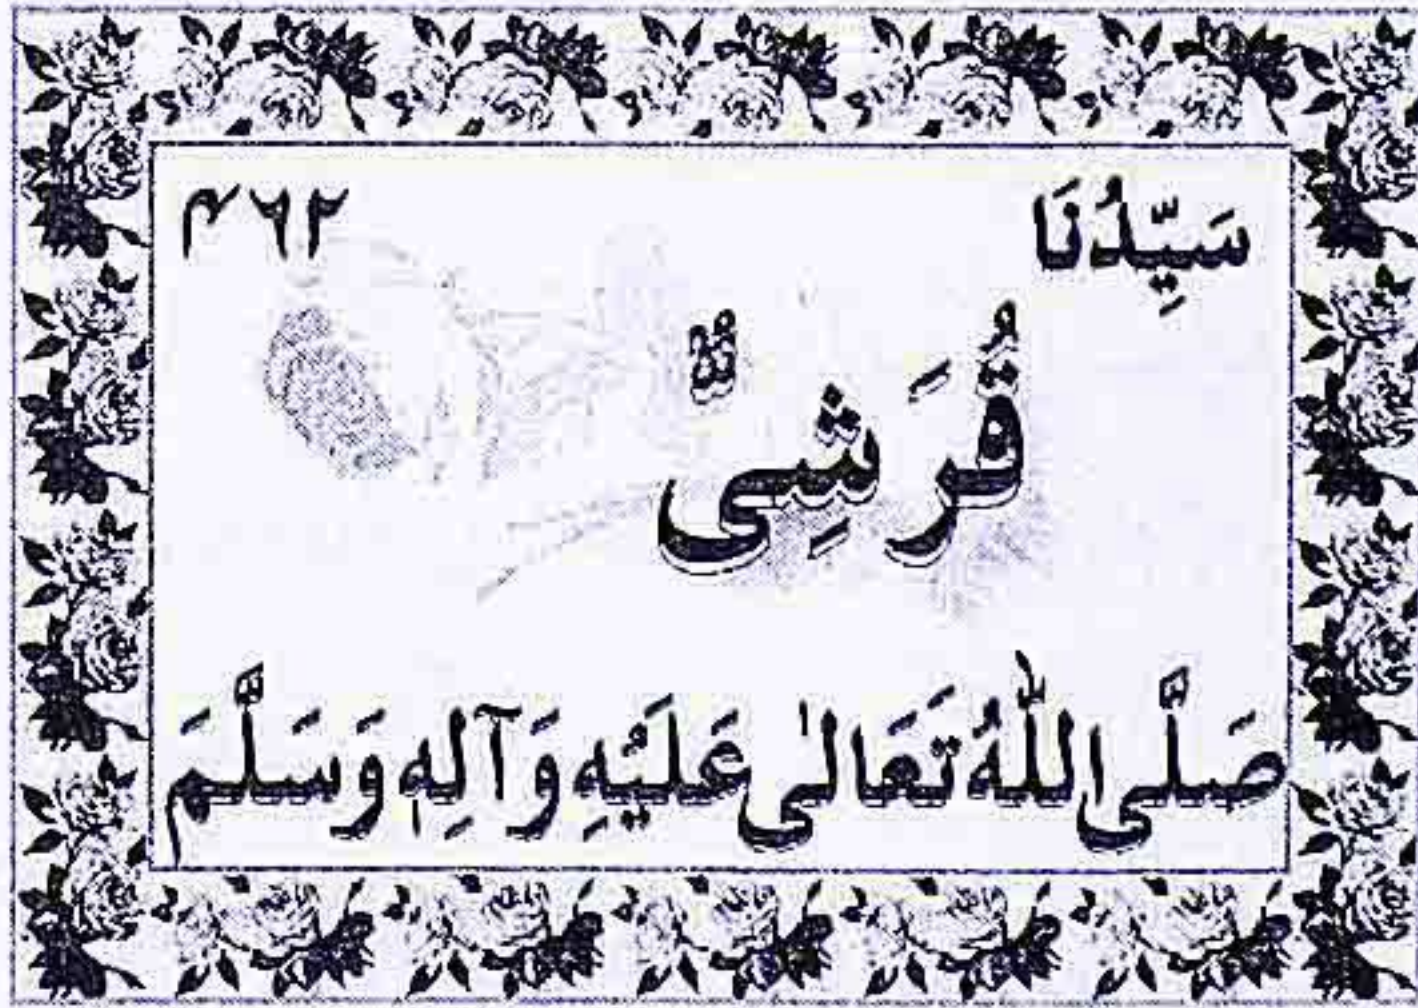 سَيِّدُنَا ۴۶۲
قُرَشِیٌّ
صَلَّى اللّٰهُ تَعَالٰى عَلَيْهِ وَآلِهٖ وَسَلَّمَ